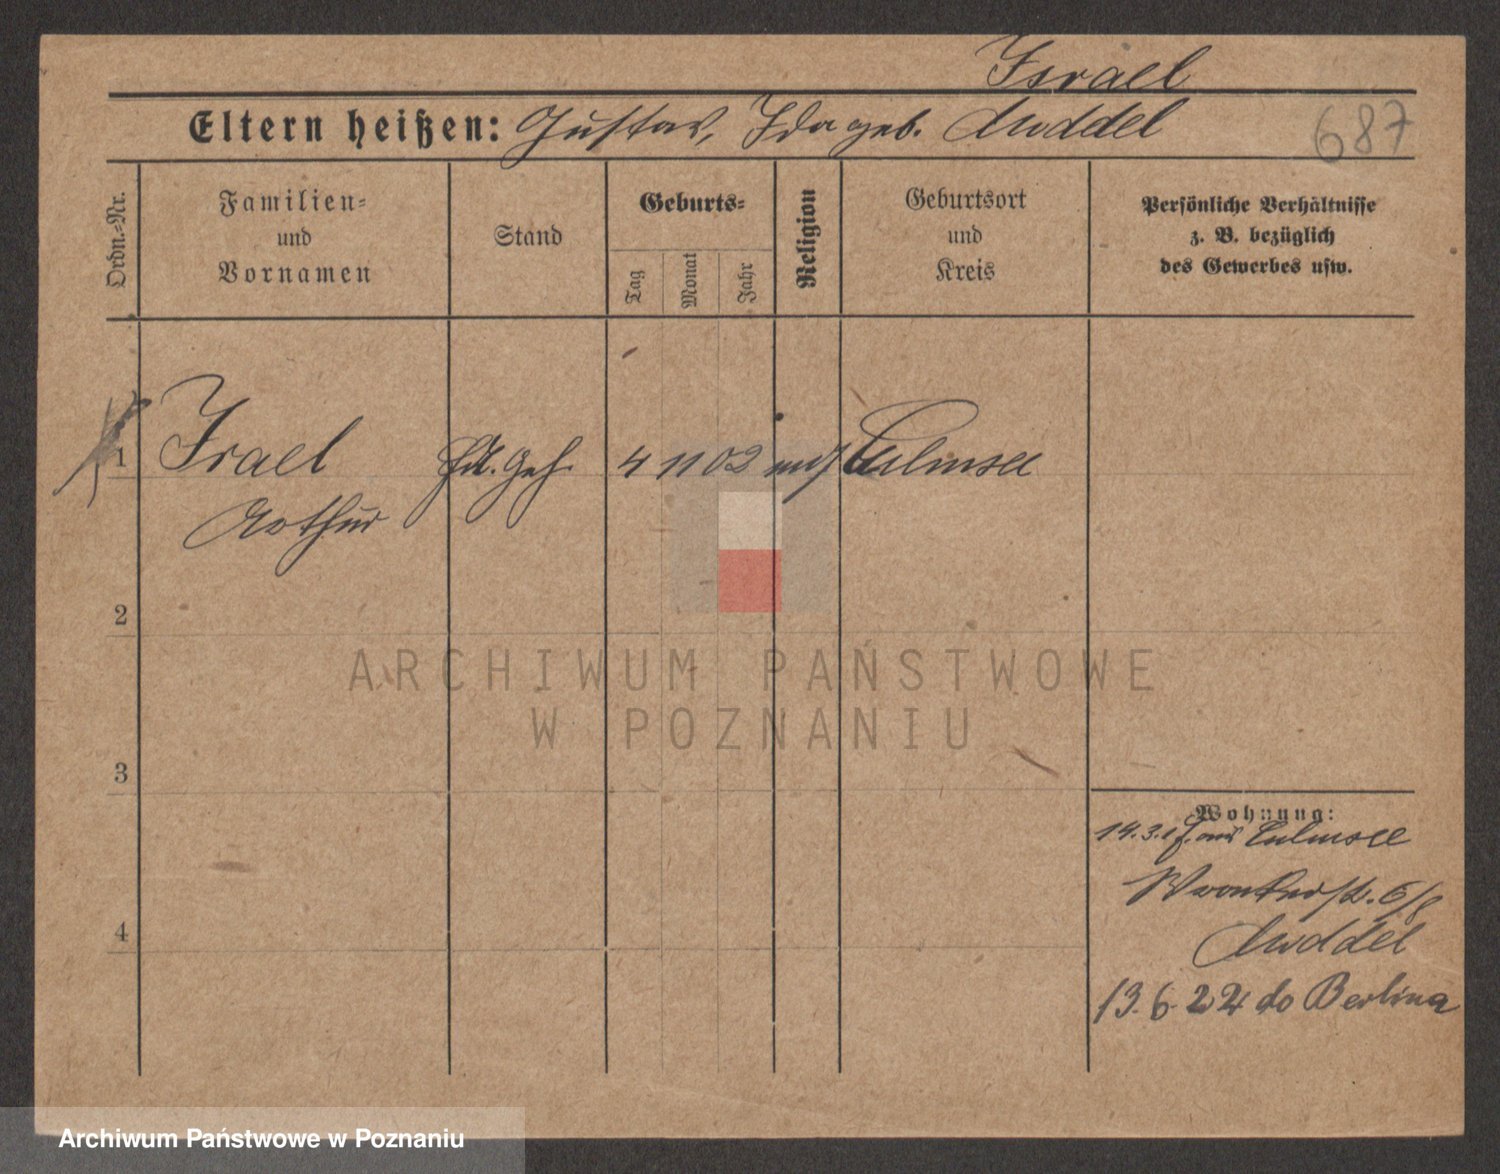 Israel
Eltern heißen: Gustav, Ida geb.
687
Ordn.-Nr.
Familien-
und
Vornamen
Stand
Geburts-
Tag
Monat
Jahr
Religion
Geburtsort
und
Kreis
Persönliche Verhältnisse
z. B. bezüglich
des Gewerbes usw.
1
Israel
Arthur
4 11 02
Culmsee
2
3
4
Wohnung:
14.3. aus Culmsee
Wronkerstr.
13. 6. 22 do Berlina
ARCHIWUM PAŃSTWOWE
W POZNANIU
Archiwum Państwowe w Poznaniu